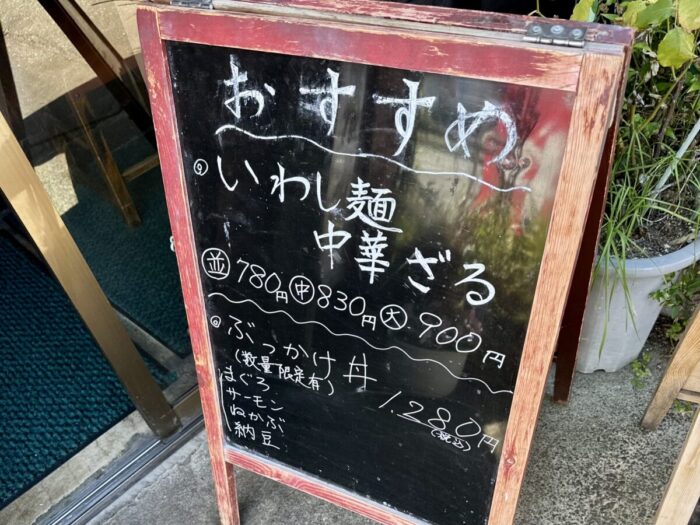 おすすめ
いわし麺
中華ざる
並780円 中830円 大900円
ぶっかけ丼
(数量限定有)
1.280円
(税込)
まぐろ
サーモン
めかぶ
納豆